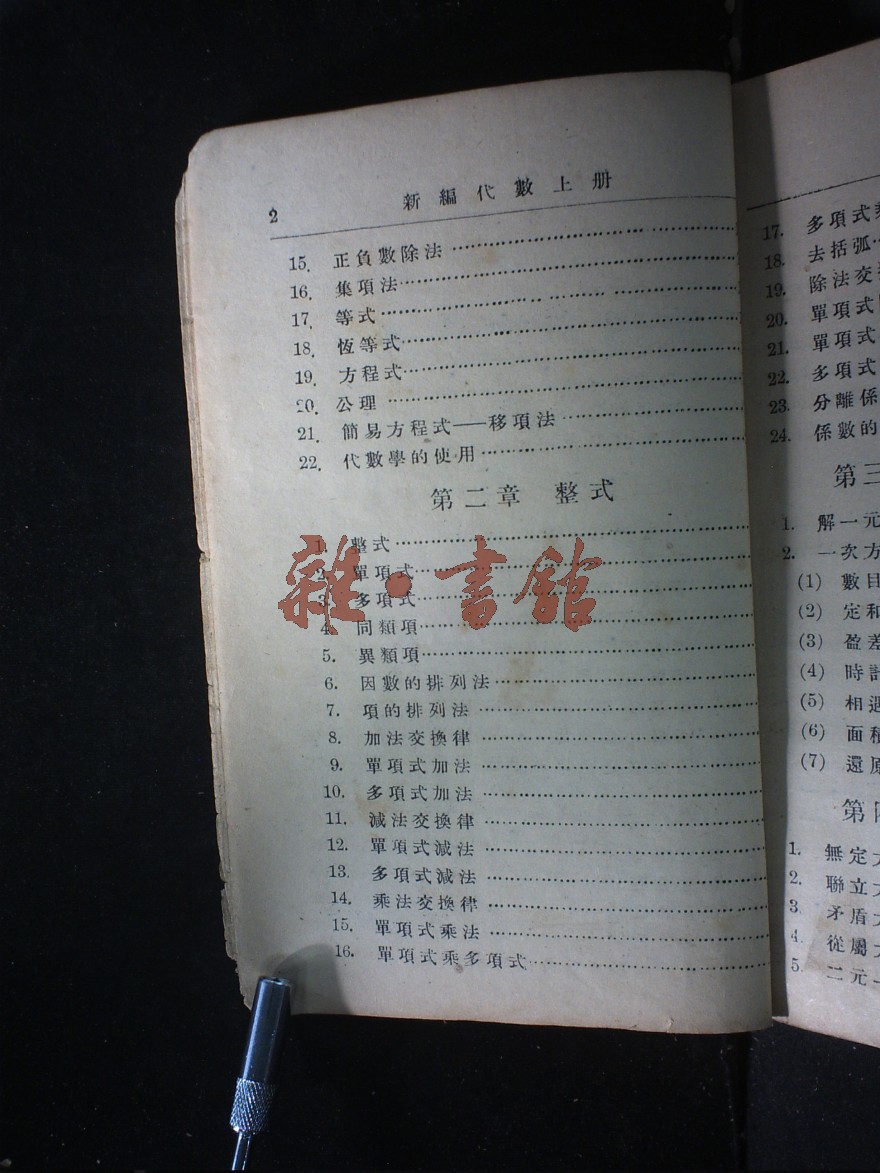 2 新編代數上册
15. 正負數除法
16. 集項法
17. 等式
18. 恆等式
19. 方程式
20. 公理
21. 簡易方程式——移項法
22. 代數學的使用
第二章 整式
1. 整式
2. 單項式
3. 多項式
4. 同類項
5. 異類項
6. 因數的排列法
7. 項的排列法
8. 加法交換律
9. 單項式加法
10. 多項式加法
11. 減法交換律
12. 單項式減法
13. 多項式減法
14. 乘法交換律
15. 單項式乘法
16. 單項式乘多項式
雜·書館
17. 多項式
18. 去括弧
19. 除法交
20. 單項式
21. 單項式
22. 多項式
23. 分離係
24. 係數的
第三
1. 解一元
2. 一次方
(1) 數目
(2) 定和
(3) 盈差
(4) 時計
(5) 相遇
(6) 面積
(7) 還原
第
1. 無定
2. 聯立
3. 矛盾
4. 從屬
5. 二元